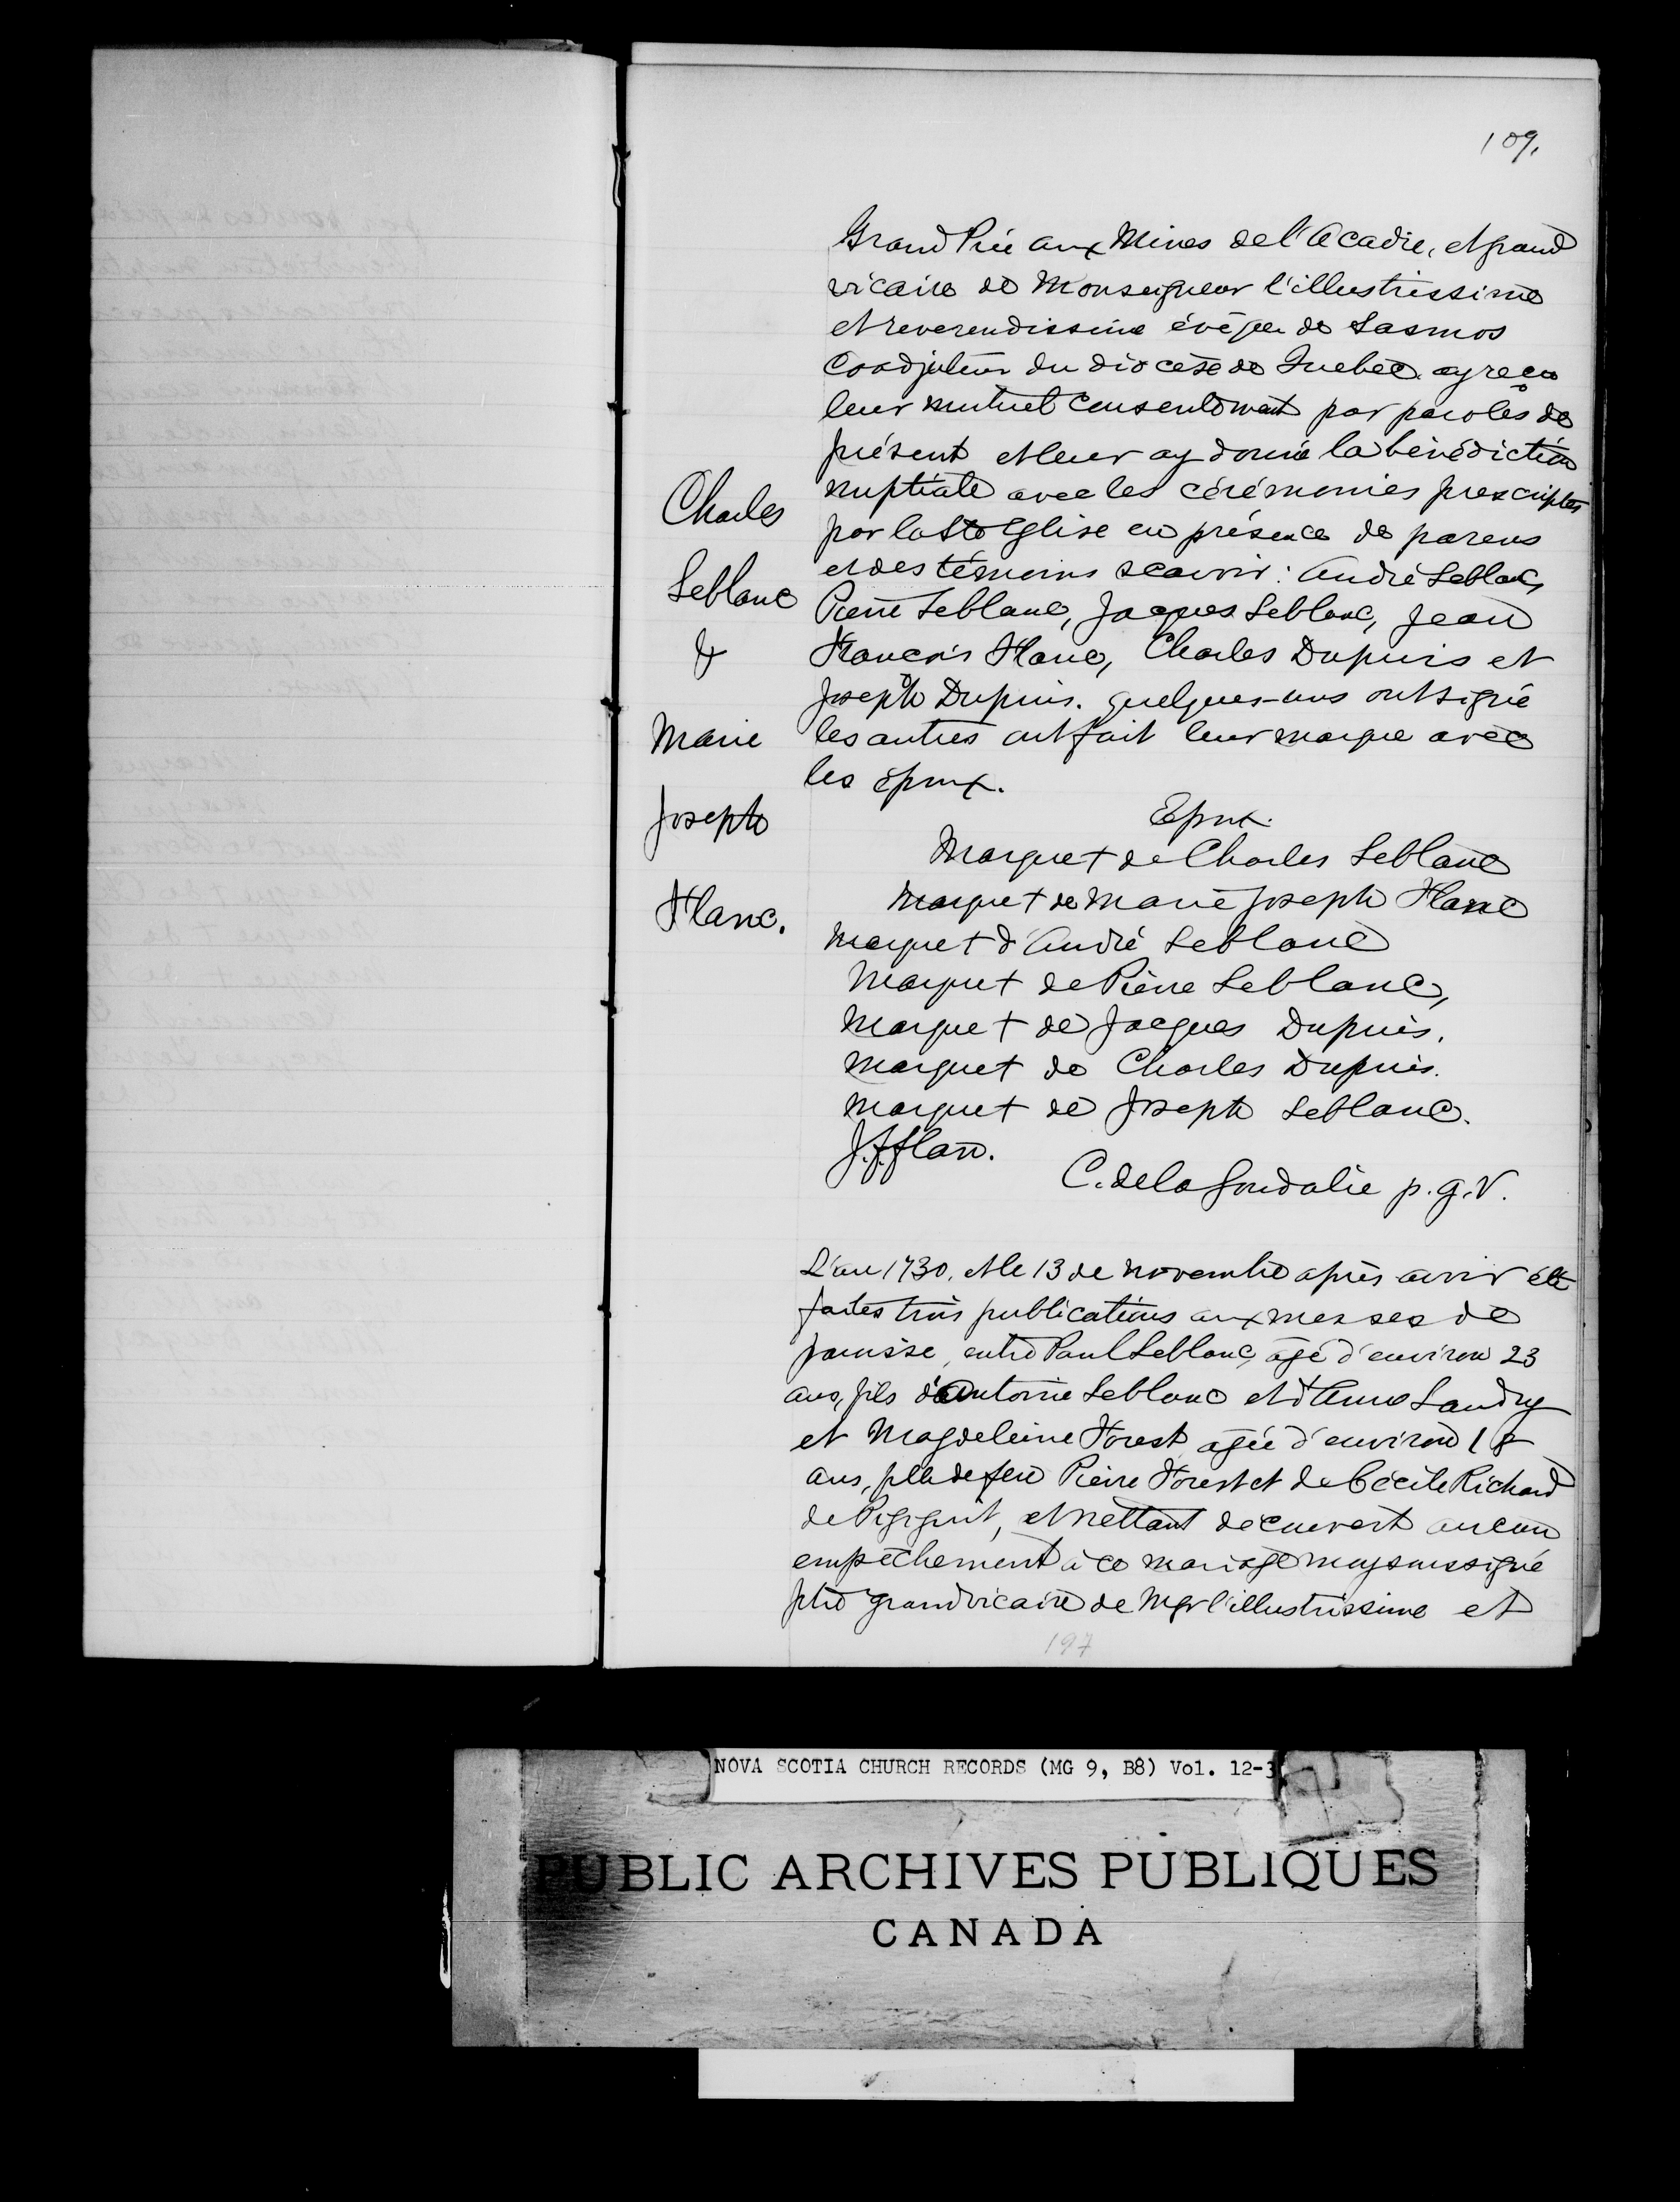 109.
Grand Prée aux Mines de l'Acadie, et grand
vicaire de Monseigneur l'illustrissime
et reverendissime évêque de Sasmos
Coadjuteur du diocèse de Quebec ay reçu
leur mutuel consentement par paroles de
présent et leur ay donné la bénédiction
nuptiale avec les cérémonies prescriptes
par la Ste Eglise en présence de parens
et des témoins scavoir : André Leblanc,
Pierre Leblanc, Jacques Leblanc, Jean
François Flanc, Charles Dupuis et
Joseph Dupuis. quelques-uns ont signé
les autres ont fait leur marque avec
les époux.
Charles
Leblanc
&
Marie
Joseph
Flanc.
Epoux.
Marque + de Charles Leblanc
Marque + de Marie Joseph Flanc
Marque + d'André Leblanc
Marque + de Pierre Leblanc,
Marque + de Jacques Dupuis.
Marque + de Charles Dupuis.
Marque + de Joseph Leblanc.
J. f. flan.
C. de la Goudalie p. g. V.
L'an 1730. et le 13 de novembre après avoir été
faites trois publications aux messes de
paroisse, entre Paul Leblanc, âgé d'environ 23
ans, fils d'Antoine Leblanc et d'Anne Landry
et Magdeleine Forest agée d'environ 18
ans, fille de feu Pierre Forest et de Cécile Richard
de Pigiguit, et n'ettant découvert aucun
empêchement à ce mariage moy soussigné
ptre grand vicaire de Mgr l'illustrissime et
197
NOVA SCOTIA CHURCH RECORDS (MG 9, B8) Vol. 12-3
PUBLIC ARCHIVES PUBLIQUES
CANADA